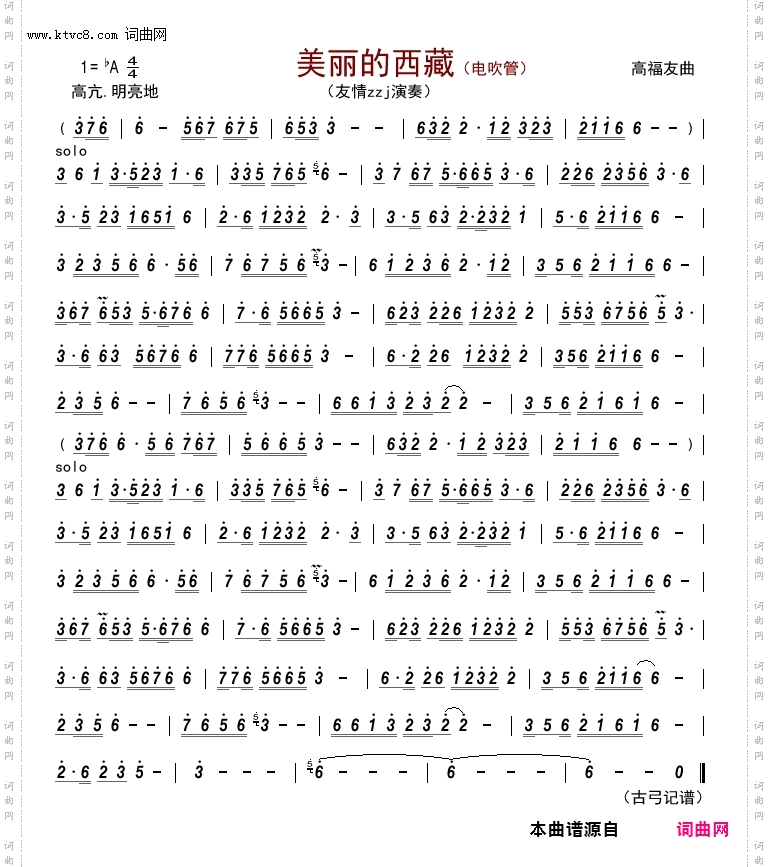 www.ktvc8.com 词曲网
1=♭A 4/4 美丽的西藏(电吹管) 高福友曲
高亢.明亮地 (友情zzj演奏)
( 376 | 6 - 567 675 | 653 3 - - | 632 2·12 323 | 2116 6 - - ) |
solo
3 6 1 3·523 1·6 | 335 765 5 6 - | 3 7 67 5·665 3·6 | 226 2356 3·6 |
3·5 23 1651 6 | 2·6 1232 2·3 | 3·5 63 2·232 1 | 5·6 2116 6 - |
3 2356 6·56 | 7 6 756 5 3 - | 6 1236 2·12 | 3 5 6 2116 6 - |
367 653 5·676 6 | 7·6 5665 3 - | 623 226 1232 2 | 553 6756 5 3· |
3·6 63 5676 6 | 776 5665 3 - | 6·2 26 1232 2 | 356 2116 6 - |
2 3 5 6 - - | 7 6 5 6 5 3 - - | 6 6 1 3 2 3 2 2 - | 3 5 6 2 1 6 1 6 - |
( 376 6·5 6 767 | 5 6 6 5 3 - - | 632 2·1 2 323 | 2 1 1 6 6 - - ) |
solo
3 6 1 3·523 1·6 | 335 765 5 6 - | 3 7 67 5·665 3·6 | 226 2356 3·6 |
3·5 23 1651 6 | 2·6 1232 2·3 | 3·5 63 2·232 1 | 5·6 2116 6 - |
3 2356 6·56 | 7 6 756 5 3 - | 6 1236 2·12 | 3 5 6 2116 6 - |
367 653 5·676 6 | 7·6 5665 3 - | 623 226 1232 2 | 553 6756 5 3· |
3·6 63 5676 6 | 776 5665 3 - | 6·2 26 1232 2 | 3 5 6 2116 6 - |
2 3 5 6 - - | 7 6 5 6 5 3 - - | 6 6 1 3 2 3 2 2 - | 3 5 6 2 1 6 1 6 - |
2·6 2 3 5 - | 3 - - - | 5 6 - - - | 6 - - - | 6 - - 0 ‖
(古弓记谱)
本曲谱源自 词曲网